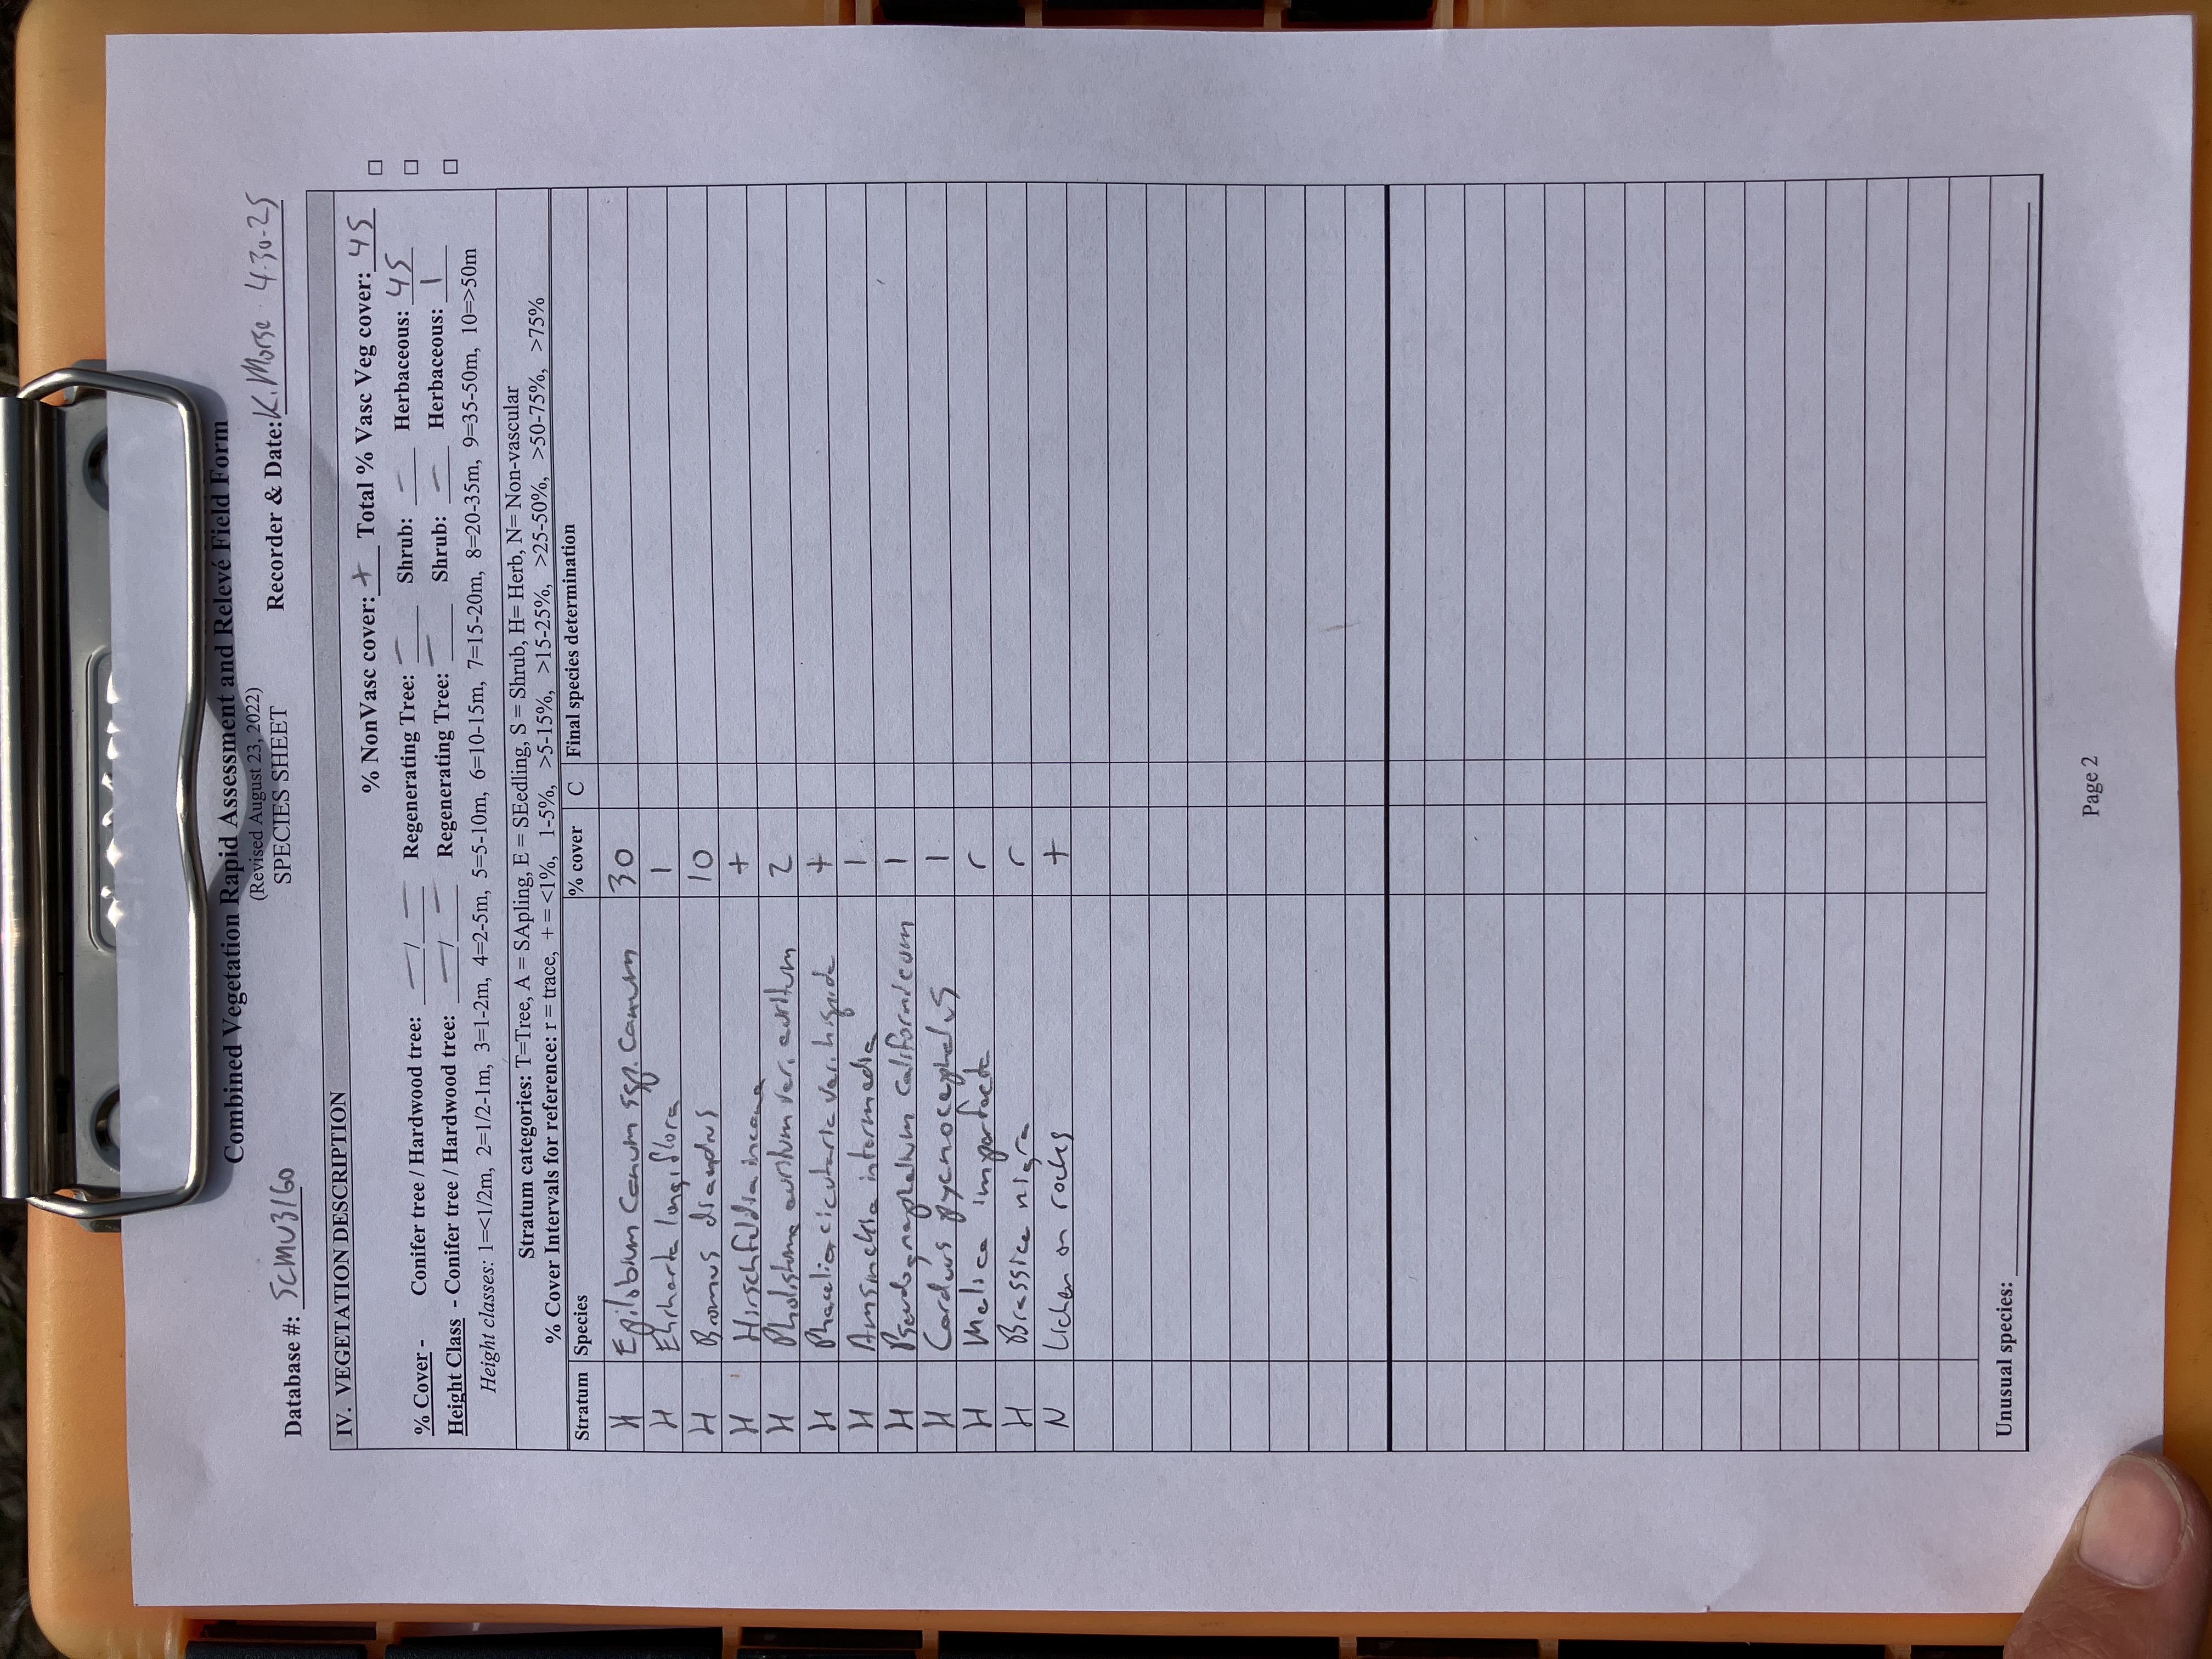 Combined Vegetation Rapid Assessment and Relevé Field Form
(Revised August 23, 2022)
SPECIES SHEET
Database #: SCMU3160 Recorder & Date: K. Morse 4-30-25
IV. VEGETATION DESCRIPTION
% NonVasc cover: + Total % Vasc Veg cover: 45 □
% Cover - Conifer tree / Hardwood tree: — / — Regenerating Tree: — Shrub: — Herbaceous: 45 □
Height Class - Conifer tree / Hardwood tree: — / — Regenerating Tree: — Shrub: — Herbaceous: 1 □
Height classes: 1=<1/2m, 2=1/2-1m, 3=1-2m, 4=2-5m, 5=5-10m, 6=10-15m, 7=15-20m, 8=20-35m, 9=35-50m, 10=>50m
Stratum categories: T=Tree, A = SApling, E = SEedling, S = Shrub, H= Herb, N= Non-vascular
% Cover Intervals for reference: r = trace, + = <1%, 1-5%, >5-15%, >15-25%, >25-50%, >50-75%, >75%
Stratum Species % cover C Final species determination
H Epilobium canum ssp. canum 30
H Ehrharta longiflora 1
H Bromus diandrus 10
H Hirschfeldia incana +
H Pholistoma auritum var. auritum 2
H Phacelia cicutaria var. hispida +
H Amsinckia intermedia 1
H Pseudognaphalium californicum 1
H Carduus pycnocephalus 1
H Melica imperfecta r
H Brassica nigra r
N Lichen on rocks +
Unusual species:
Page 2